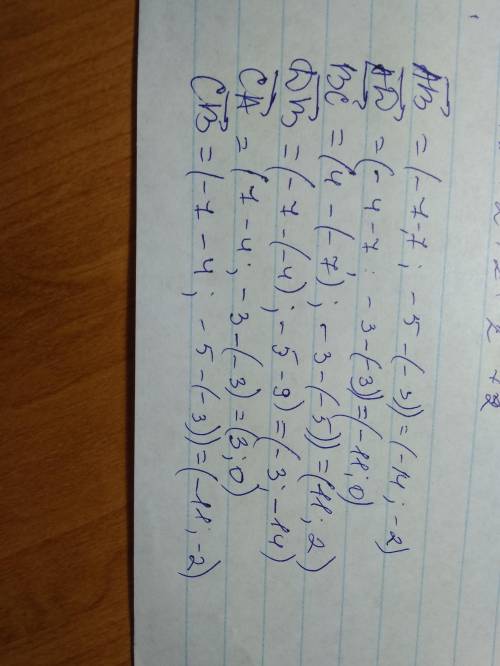 AB = (-7-7; -5-(-3)) = (-14; -2)
AD = (-4-7; -3-(-3)) = (-11; 0)
BC = (4-(-7); -3-(-5)) = (11; 2)
DB = (-7-(-4); -5-9) = (-3; -14)
CA = (7-4; -3-(-3) = (3; 0)
CB = (-7-4; -5-(-3)) = (-11; -2)